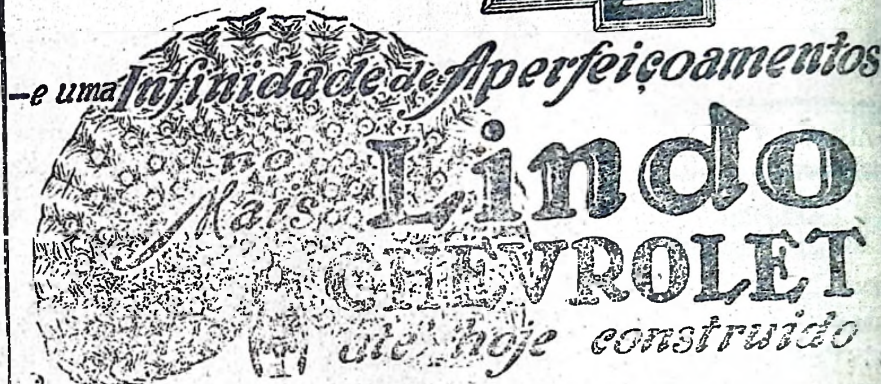 -e uma Infinidade de Aperfeiçoamentos
no
Mais Lindo
CHEVROLET
até hoje construido